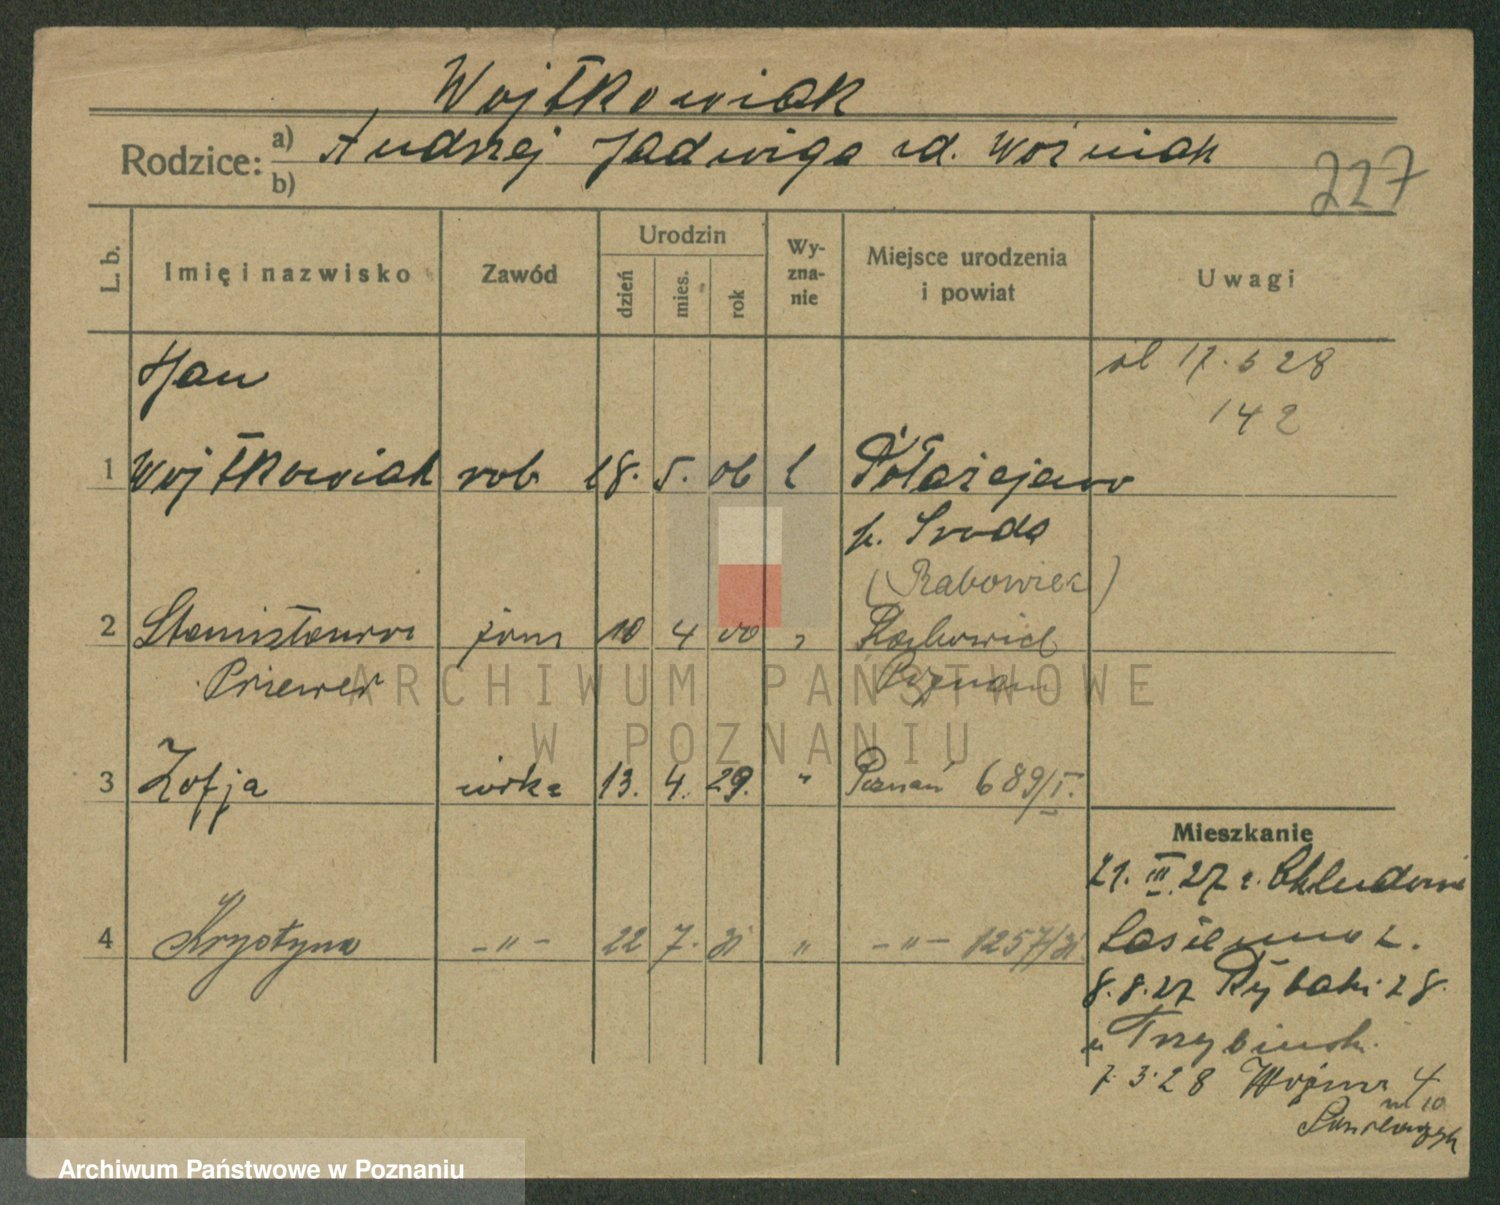 Wojtkowiak
Rodzice: a) Andrzej Jadwiga zd. Woźniak
b)
227
L. b.
Imię i nazwisko
Zawód
Urodzin
dzień
mies.
rok
Wy-
zna-
nie
Miejsce urodzenia
i powiat
Uwagi
Jan
śl 17. 5 28
142
1 Wojtkowiak rob 18. 5. 06 k
p. Środa
(Rabowiek)
2 Stanisława żona 10 4 00 "
Poznań
3 Zofja córka 13. 4. 29. " Poznań 689/I.
Mieszkanie
21. III. 27 z
4 Krystyna - " - 22 7. 31 " - " - 1257/31
8.8.27 Rybaki 28.
u Trzybiński
7. 3. 28 4
m 10
ARCHIWUM PAŃSTWOWE
W POZNANIU
Archiwum Państwowe w Poznaniu